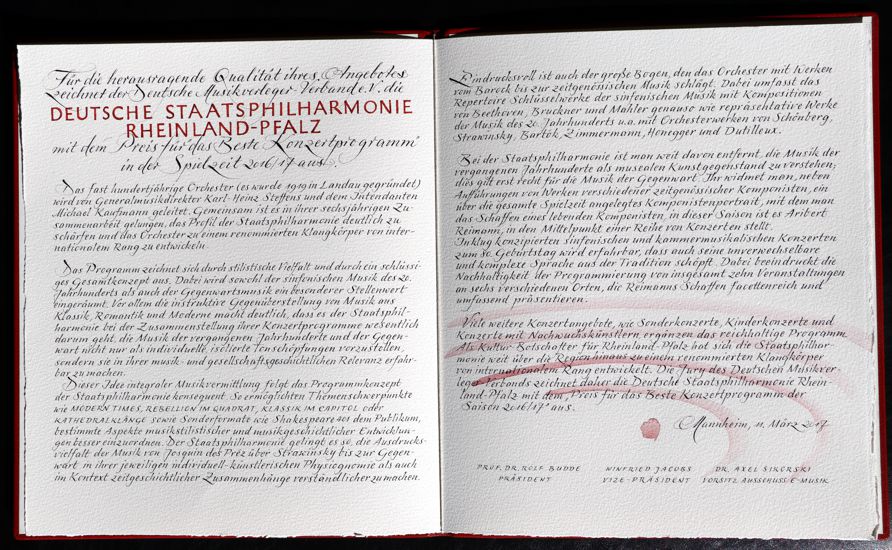 Für die herausragende Qualität ihres Angebotes
zeichnet der Deutsche Musikverleger-Verband e.V. die
DEUTSCHE STAATSPHILHARMONIE
RHEINLAND-PFALZ
mit dem Preis für das Beste Konzertprogramm"
in der Spielzeit 2016/17 aus.
Das fast hundertjährige Orchester (es wurde 1919 in Landau gegründet)
wird von Generalmusikdirektor Karl-Heinz Steffens und dem Intendanten
Michael Kaufmann geleitet. Gemeinsam ist es in ihrer sechsjährigen Zu-
sammenarbeit gelungen, das Profil der Staatsphilharmonie deutlich zu
schärfen und das Orchester zu einem renommierten Klangkörper von inter-
nationalem Rang zu entwickeln.
Das Programm zeichnet sich durch stilistische Vielfalt und durch ein schlüssi-
ges Gesamtkonzept aus. Dabei wird sowohl der sinfonischen Musik des 20.
Jahrhunderts als auch der Gegenwartsmusik ein besonderer Stellenwert
eingeräumt. Vor allem die instruktive Gegenüberstellung von Musik aus
Klassik, Romantik und Moderne macht deutlich, dass es der Staatsphil-
harmonie bei der Zusammenstellung ihrer Konzertprogramme wesentlich
darum geht, die Musik der vergangenen Jahrhunderte und der Gegen-
wart nicht nur als individuelle, isolierte Tonschöpfungen vorzustellen,
sondern sie in ihrer musik- und gesellschaftsgeschichtlichen Relevanz erfahr-
bar zu machen.
Dieser Idee integraler Musikvermittlung folgt das Programmkonzept
der Staatsphilharmonie konsequent. So ermöglichten Themenschwerpunkte
wie MODERN TIMES, REBELLION IM QUADRAT, KLASSIK IM CAPITOL oder
KATHEDRALKLÄNGE sowie Sonderformate wie Shakespeare 401 dem Publikum,
bestimmte Aspekte musikstilistischer und musikgeschichtlicher Entwicklun-
gen besser einzuordnen. Der Staatsphilharmonie gelingt es so, die Ausdrucks-
vielfalt der Musik von Josquin des Prez über Strawinsky bis zur Gegen-
wart in ihrer jeweiligen individuell-künstlerischen Physiognomie als auch
im Kontext zeitgeschichtlicher Zusammenhänge verständlicher zu machen.
Eindrucksvoll ist auch der große Bogen, den das Orchester mit Werken
vom Barock bis zur zeitgenössischen Musik schlägt. Dabei umfasst das
Repertoire Schlüsselwerke der sinfonischen Musik mit Kompositionen
von Beethoven, Bruckner und Mahler genauso wie repräsentative Werke
der Musik des 20. Jahrhunderts u.a. mit Orchesterwerken von Schönberg,
Strawinsky, Bartók, Zimmermann, Honegger und Dutilleux.
Bei der Staatsphilharmonie ist man weit davon entfernt, die Musik der
vergangenen Jahrhunderte als musealen Kunstgegenstand zu verstehen;
dies gilt erst recht für die Musik der Gegenwart. Ihr widmet man, neben
Aufführungen von Werken verschiedener zeitgenössischer Komponisten, ein
über die gesamte Spielzeit angelegtes Komponistenportrait, mit dem man
das Schaffen eines lebenden Komponisten, in dieser Saison ist es Aribert
Reimann, in den Mittelpunkt einer Reihe von Konzerten stellt.
In klug konzipierten sinfonischen und kammermusikalischen Konzerten
zum 80. Geburtstag wird erfahrbar, dass auch seine unverwechselbare
und komplexe Sprache aus der Tradition schöpft. Dabei beeindruckt die
Nachhaltigkeit der Programmierung von insgesamt zehn Veranstaltungen
an sechs verschiedenen Orten, die Reimanns Schaffen facettenreich und
umfassend präsentieren.
Viele weitere Konzertangebote, wie Sonderkonzerte, Kinderkonzerte und
Konzerte mit Nachwuchskünstlern, ergänzen das reichhaltige Programm.
Als Kultur-Botschafter für Rheinland-Pfalz hat sich die Staatsphilhar-
monie weit über die Region hinaus zu einem renommierten Klangkörper
von internationalem Rang entwickelt. Die Jury des Deutschen Musikver-
leger Verbands zeichnet daher die Deutsche Staatsphilharmonie Rhein-
land-Pfalz mit dem „Preis für das Beste Konzertprogramm der
Saison 2016/17" aus.
Mannheim, 11. März 2017
PROF. DR. ROLF BUDDE WINFRIED JACOBS DR. AXEL SIKORSKI
PRÄSIDENT VIZE-PRÄSIDENT VORSITZ AUSSCHUSS E-MUSIK